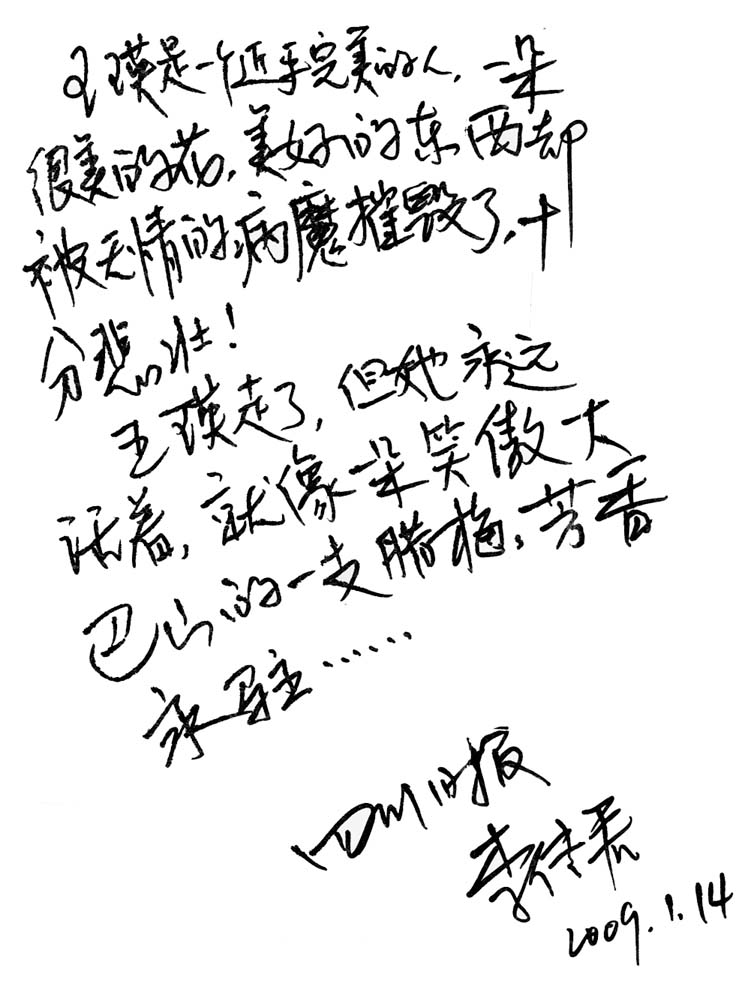 王瑛是一个近乎完美的人，一朵
很美的花，美好的东西却
被无情的病魔摧毁了，十
分悲壮！
王瑛走了，但她永远
活着，就像一朵笑傲大
巴山的一支腊梅，芳香
永驻……
四川日报
李传君
2009.1.14